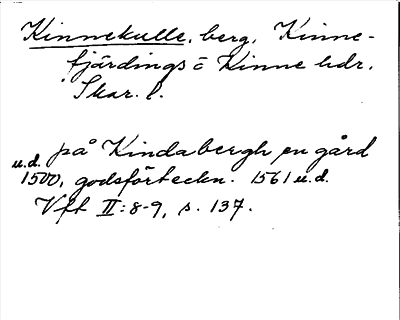 Kinnekulle, berg, Kinne-
fjärdings o Kinne hdr,
Skar. l.
på Kindabergh en gård
u.d.
1500, godsförteckn. 1561 u.d.
Vft II:8-9, s. 137.